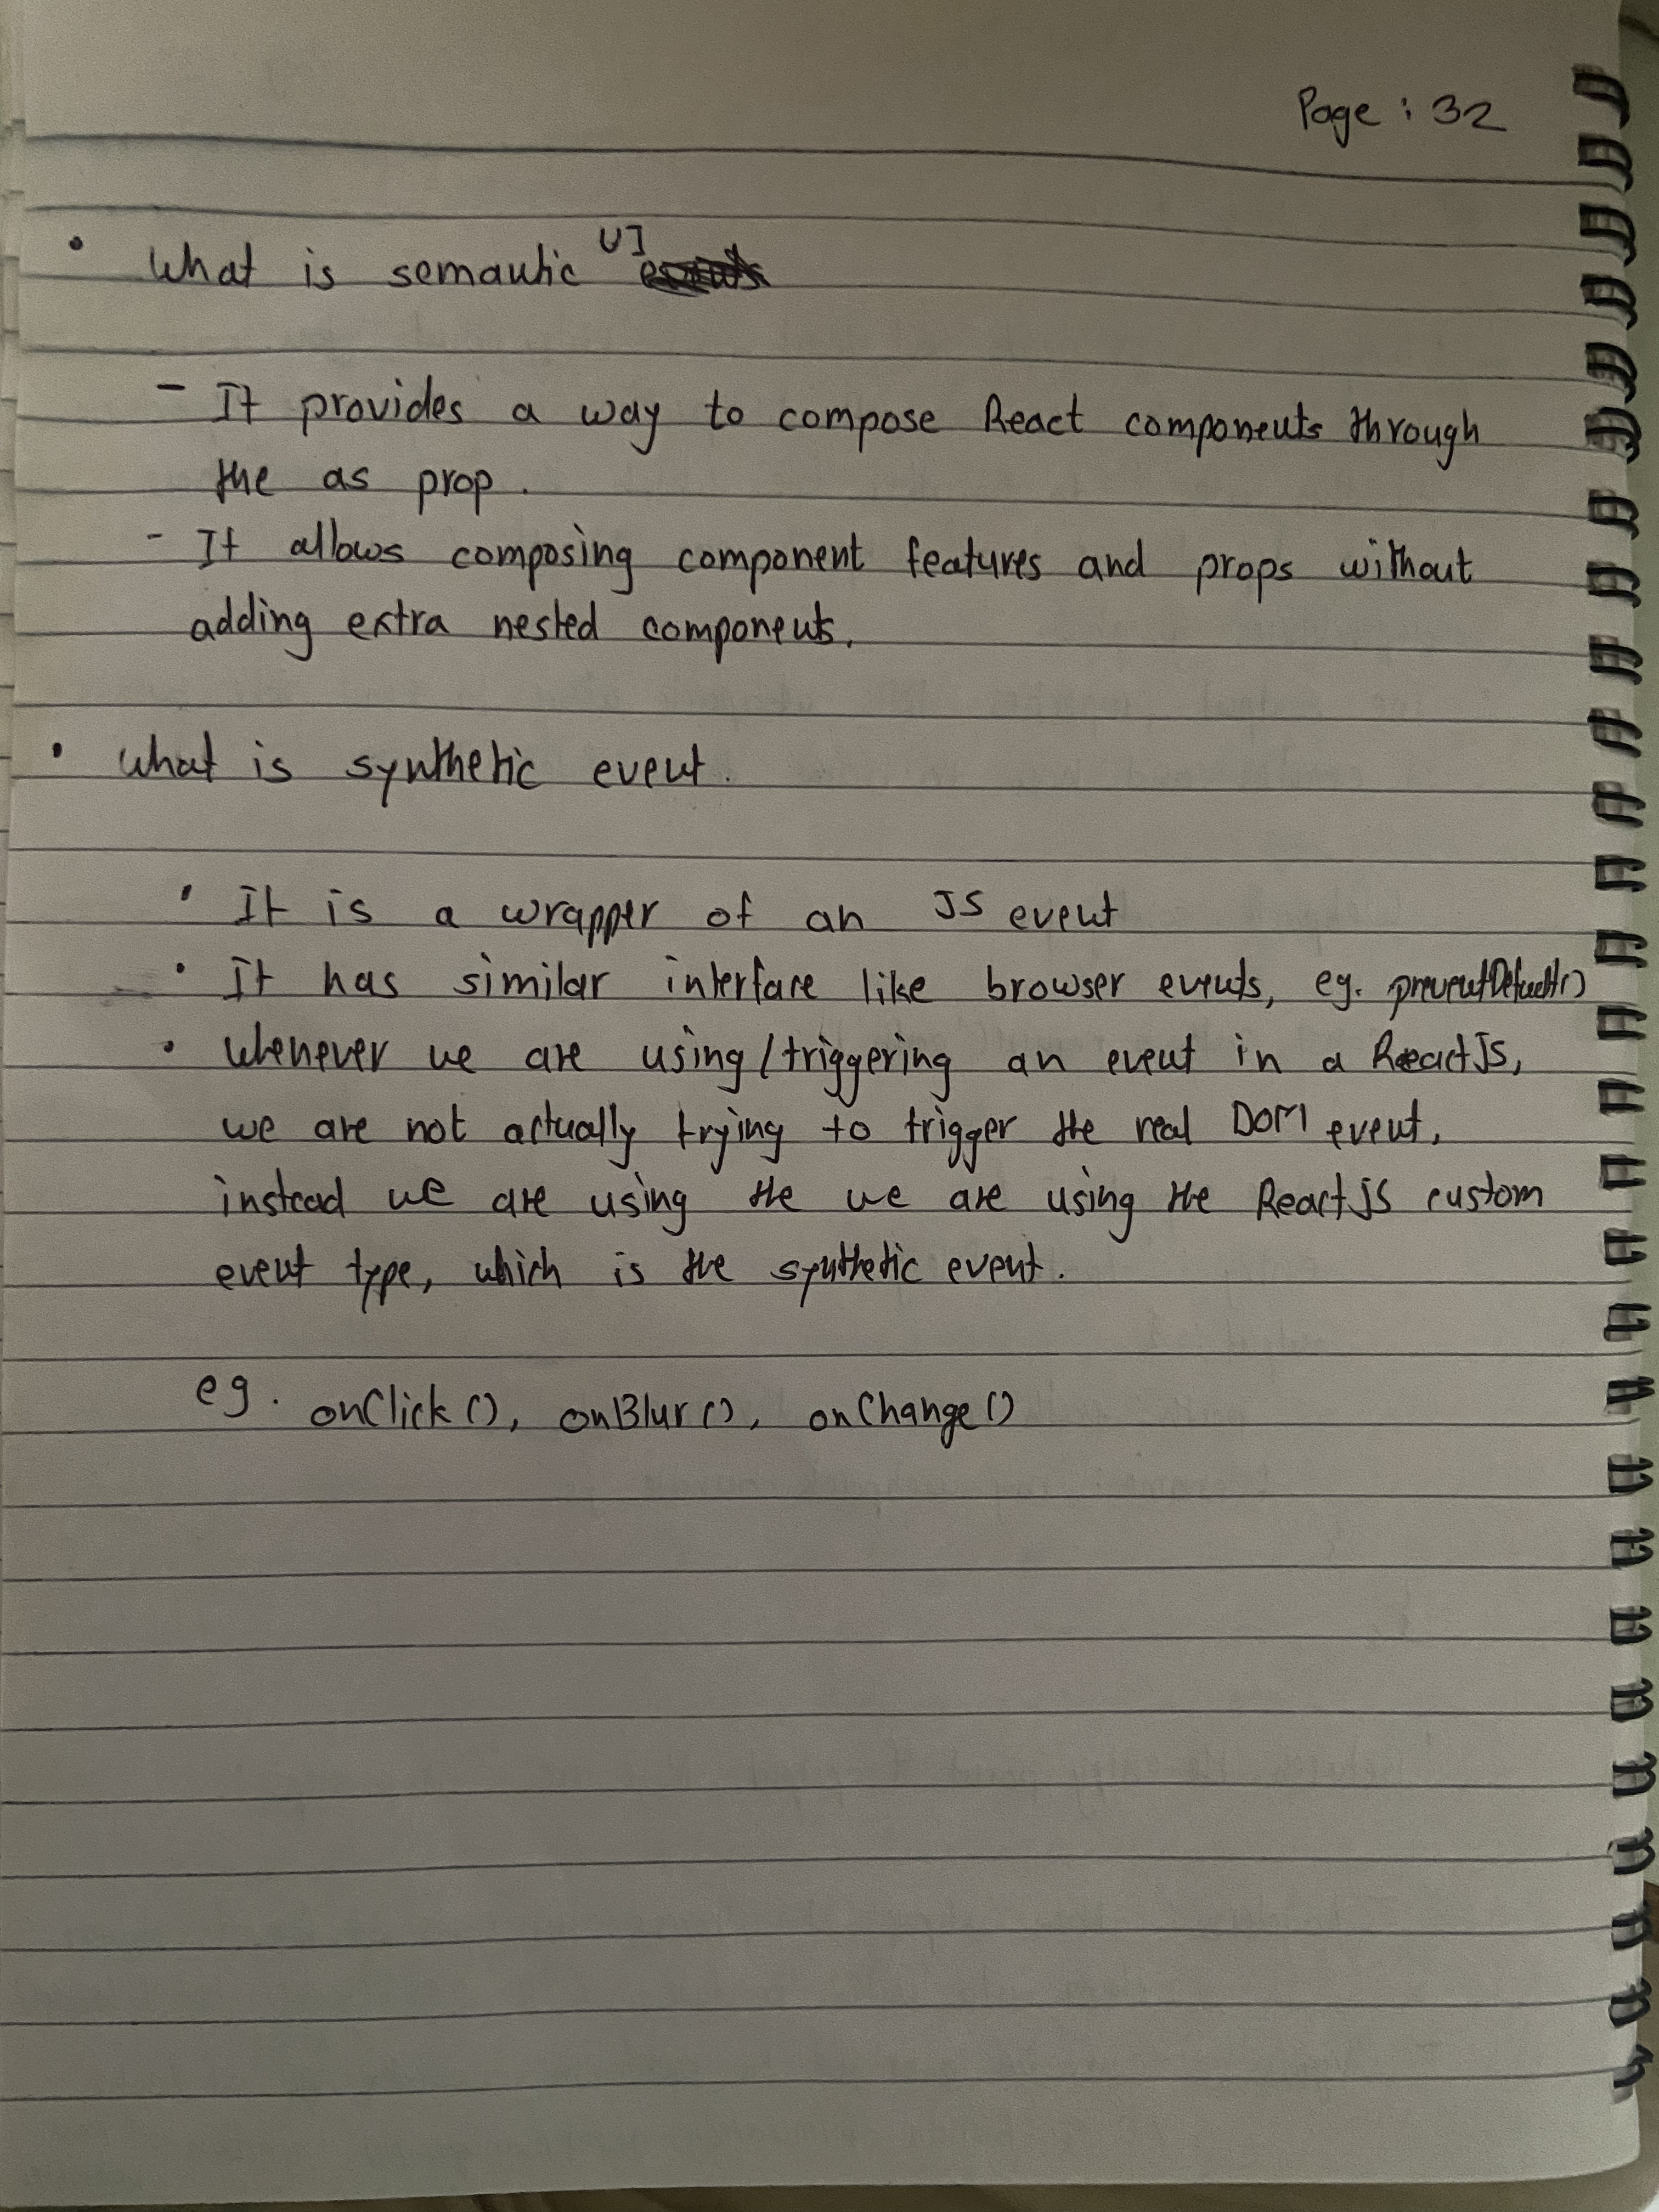 Page : 32
• What is semantic UI
- It provides a way to compose React components through
the as prop.
- It allows composing component features and props without
adding extra nested components.
• What is synthetic event.
• It is a wrapper of an JS event
• It has similar interface like browser events, eg. preventDefault()
• Whenever we are using/triggering an event in a ReactJS,
we are not actually trying to trigger the real DOM event,
instead we are using the we are using the ReactJS custom
event type, which is the synthetic event.
eg. onClick(), onBlur(), onChange()